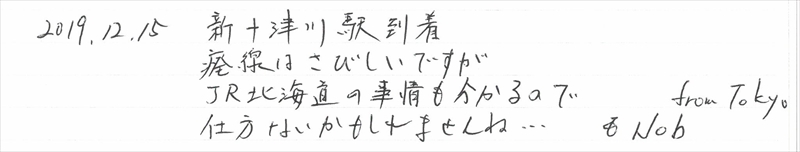 2019.12.15 新十津川駅到着
廃線はさびしいですが
JR北海道の事情も分かるので from Tokyo
仕方ないかもしれませんね… Nob